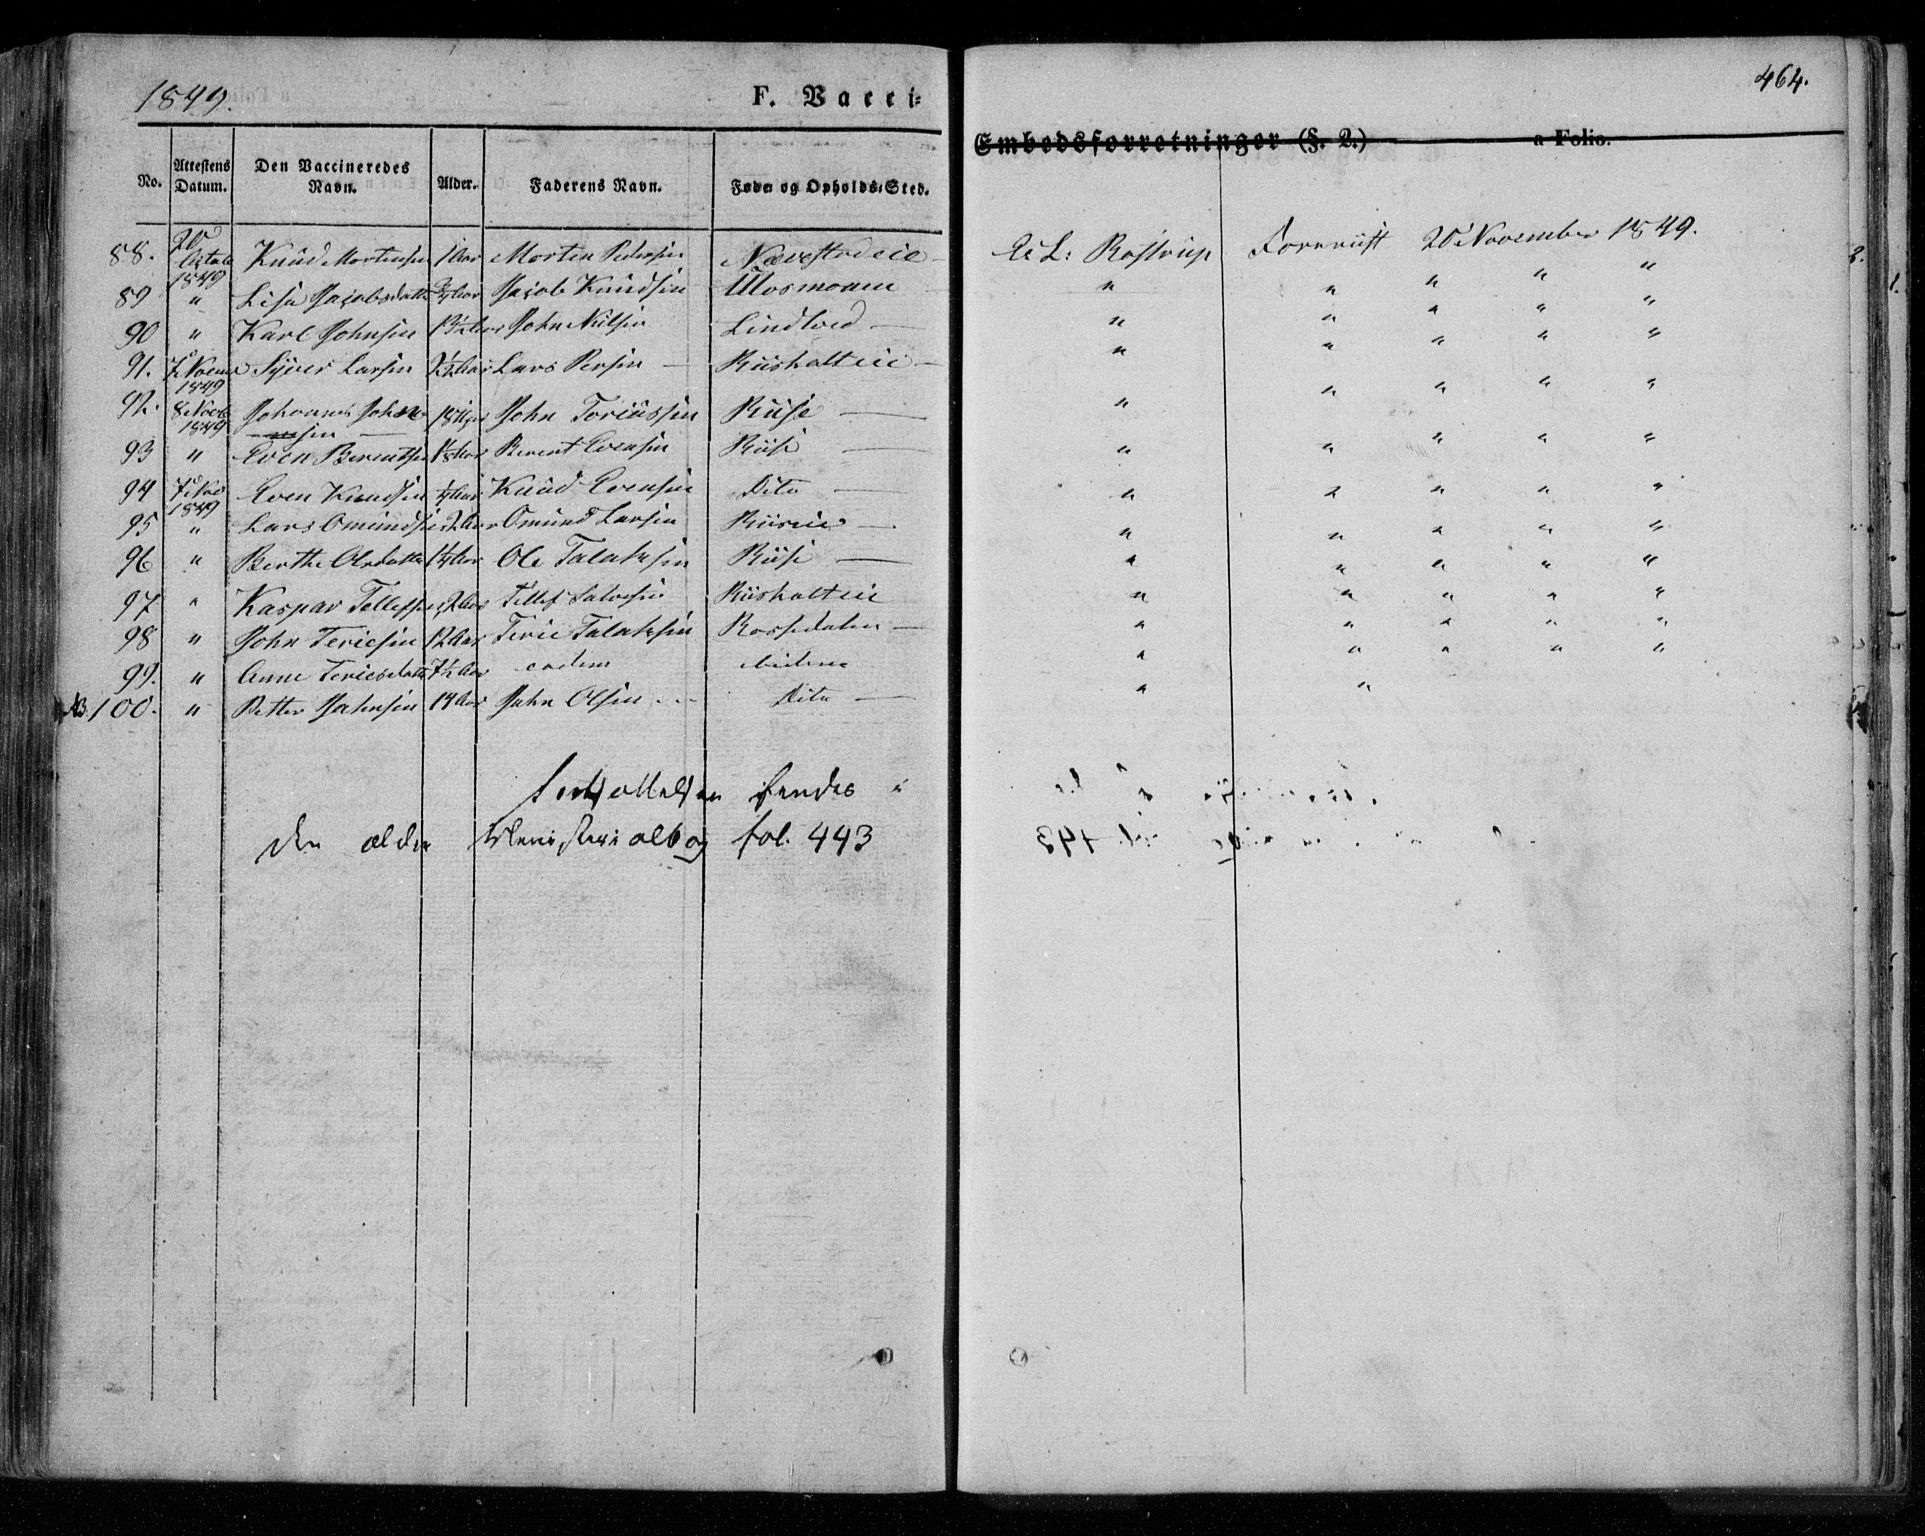 1849.
F. Vacci-
464.
Embedsforretninger (§. 2.) a Folio.
No. Attestens Datum. Den Vaccineredes Navn. Alder. Faderens Navn. Føde og Opholds-Sted.
88. 20 Octob 1849 Knud Mortensen 1 Aar Morten Pedersen Nævestadeie A: L: Rostrup Forevist 20 November 1849.
89 " Lise Jacobsdatter 3/4 Aar Jacob Knudsen Ulosmoen " " " " "
90 " Karl Johnsen 1 3/12 Aar John Nilsen Lindtved — " " " " "
91. 7 Novem 1849 Syver Larsen 2 1/2 Aar Lars Persen — Riisholteie — " " " " "
92. 8 Novb 1849 Johannes Johnsen — 18 Uger John Toriussen Riise — " " " " "
93 " Even Berentsen 1/8 Aar Berent Evensen Riise — " " " " "
94 7 Nov 1849 Even Knudsen 1/4 Aar Knud Evensen Dito — " " " " "
95 " Lars Omundsen 2 Aar Omund Larsen Riiseie — " " " " "
96 " Berthe Olsdatter 1 1/4 Aar Ole Talaksen Riise — " " " " "
97 " Kaspar Tellefsen 2 Aar Tellef Salvesen Riisholteie " " " " "
98 " John Teriesen 12 Aar Terie Talaksen Rossedalen — " " " " "
99. " Anne Teriesdatter 7 1/2 Aar eadem ibidem " " " " "
NB 100. " Petter Johnsen 14 Aar John Olsen Dito — " "
Fortsættelsen findes i
den ældre Ministerialbog fol. 443